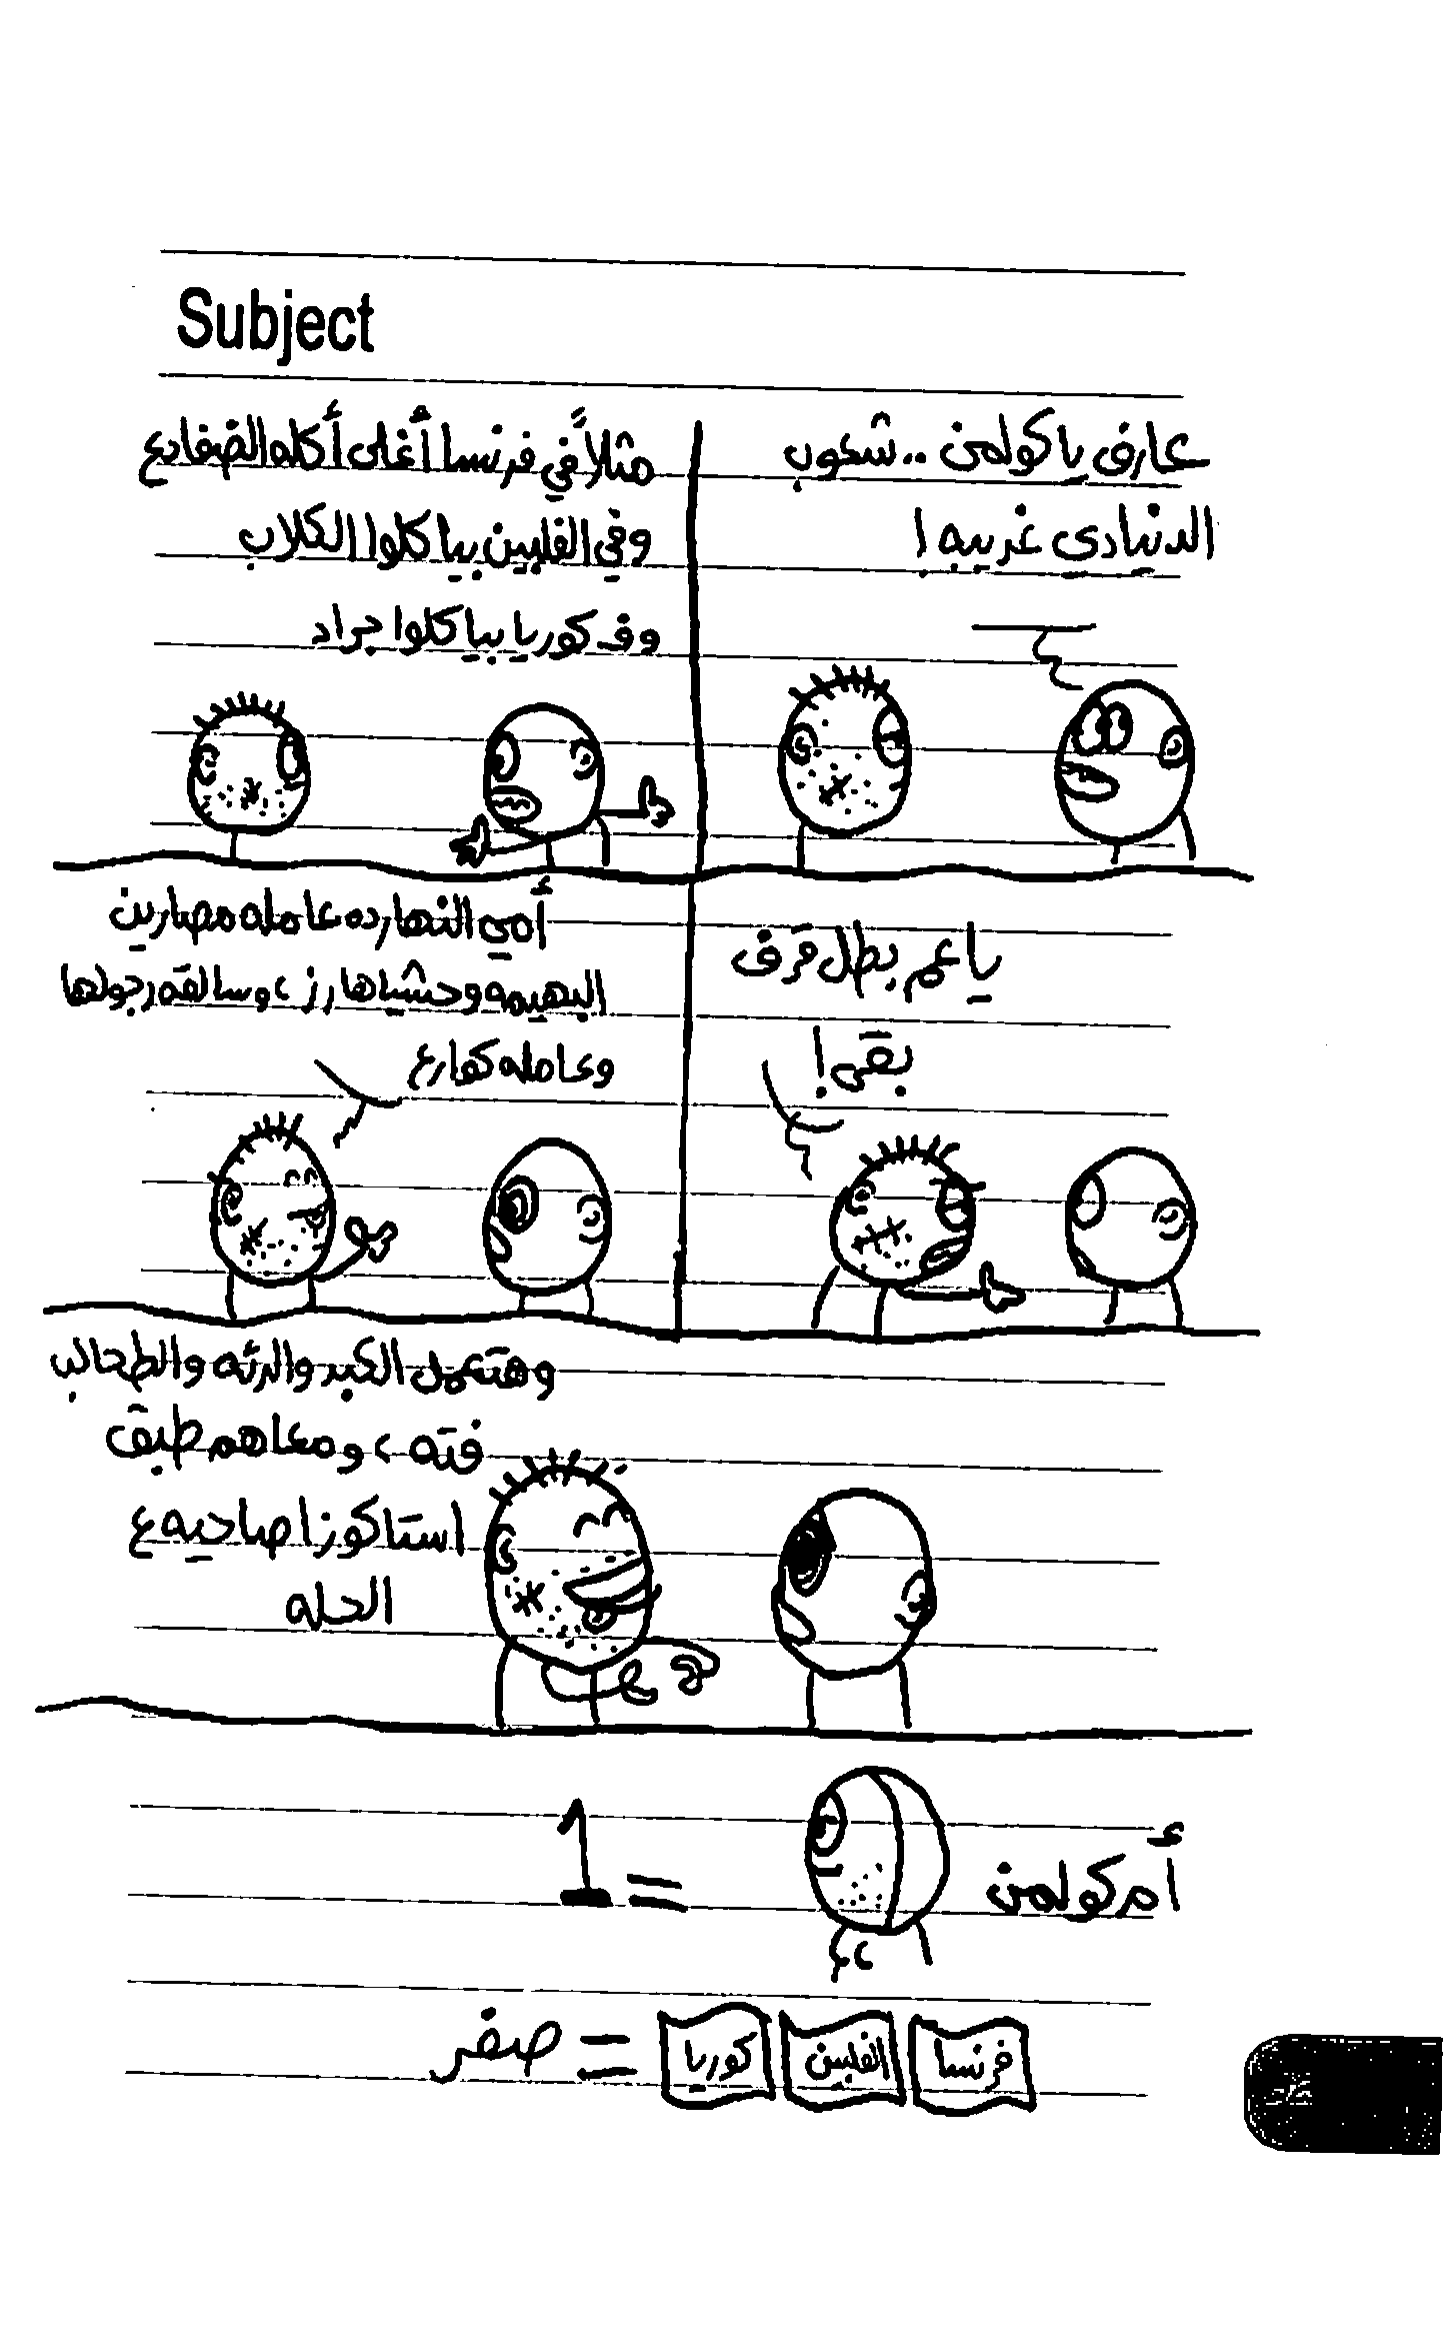 Subject
عارف يا كولمن .. شعوب
الدنيا دي غريبه !
مثلاً في فرنسا أغلى أكله الضفادع
وفي الفلبين بياكلوا الكلاب
وف كوريا بياكلوا جراد
يا عم بطل قرف
بقى !
أمي النهارده عامله مصارين
البهيمه وحشياها رز ، وسالقه رجولها
وعامله كوارع
وهتعمل الكبد والرئه والطحالب
فته ، ومعاهم طبق
استاكوزا صاحيه ع
الحله
أم كولمن = 1
فرنسا الفلبين كوريا = صفر